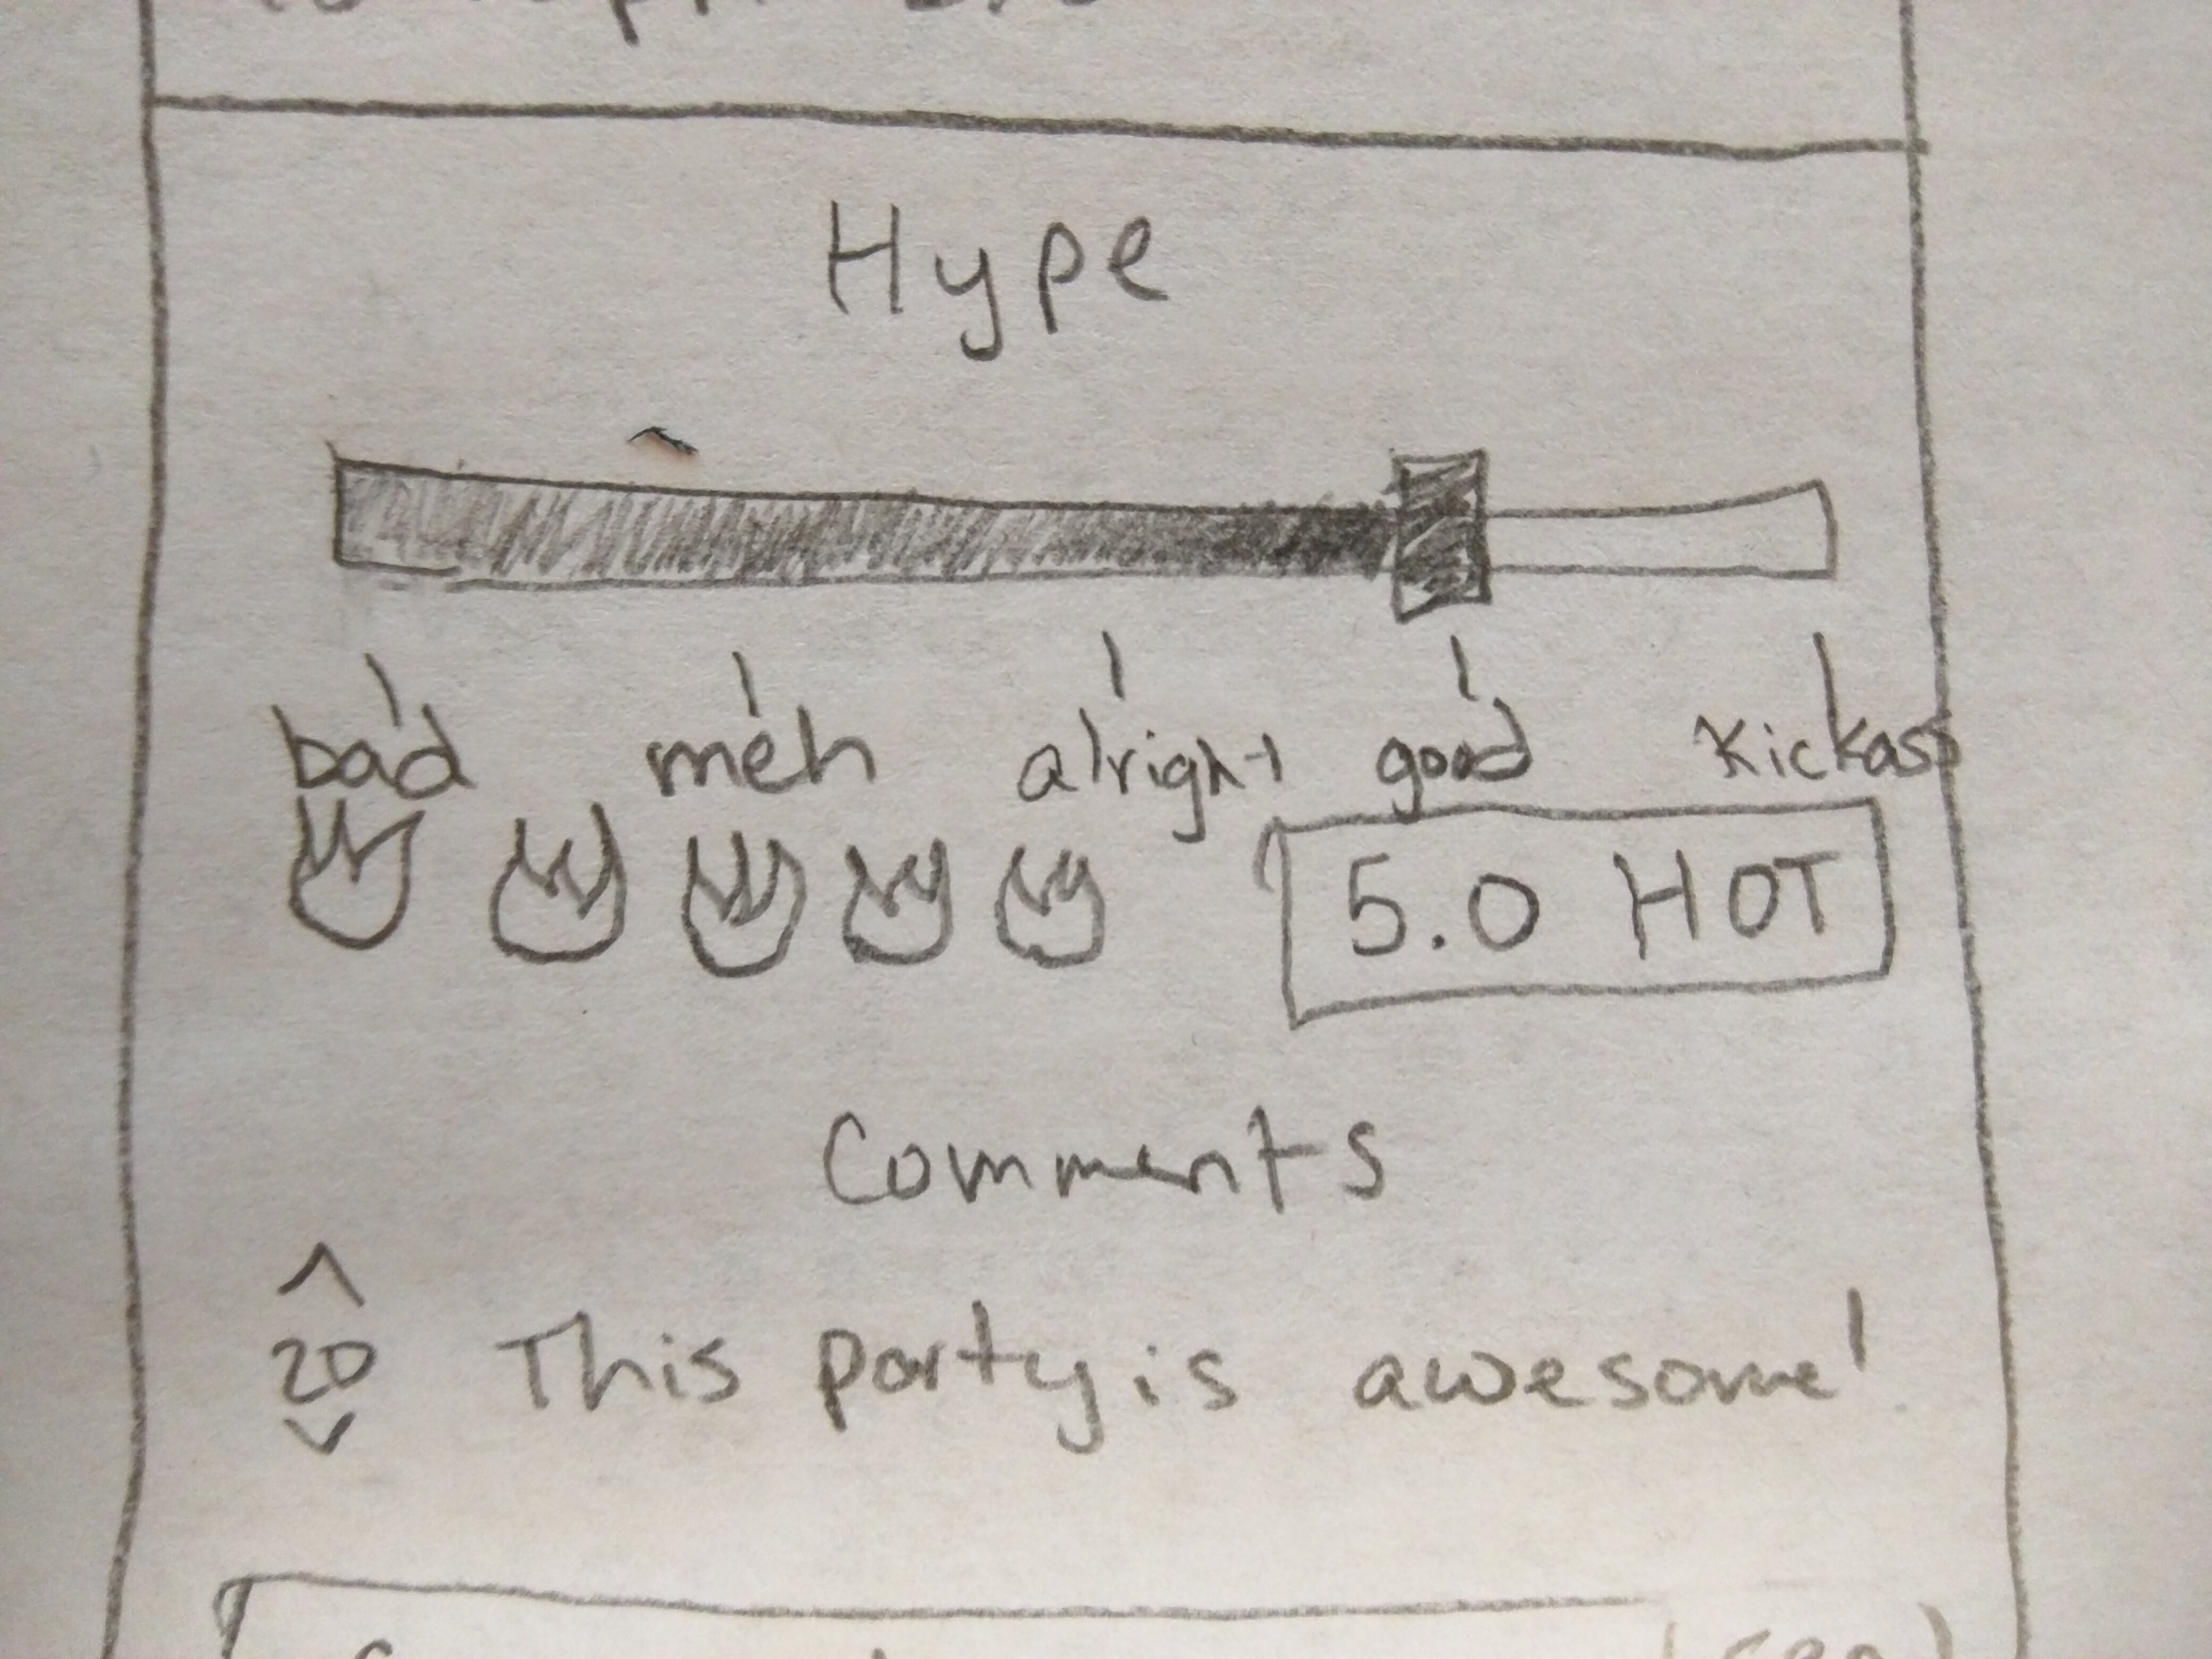 Hype
bad meh alright good Kickass
5.0 HOT
Comments
20 This party is awesome!